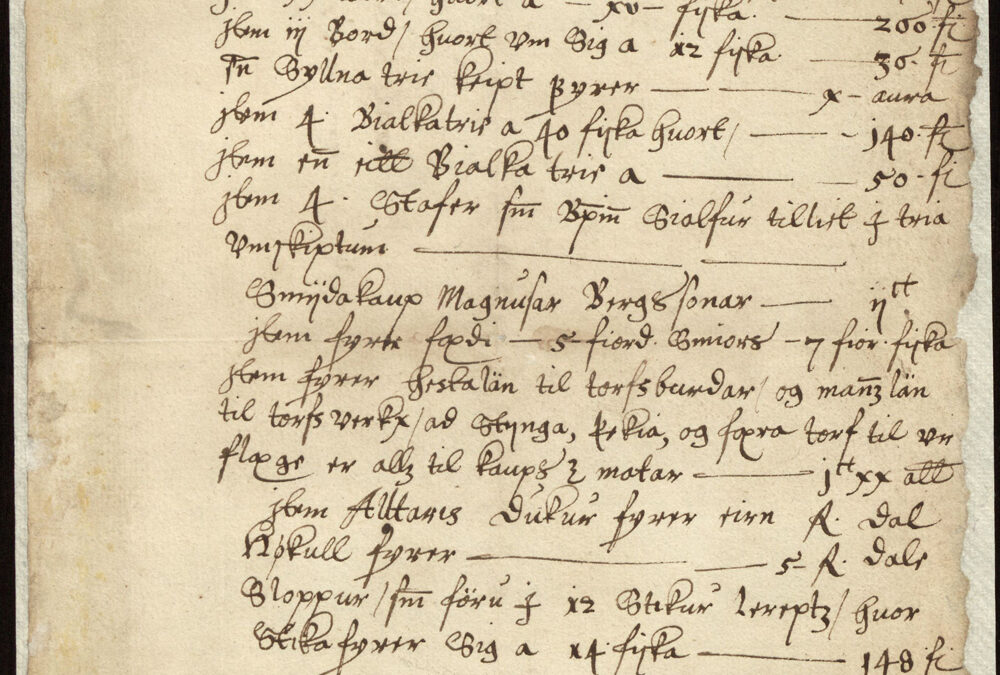 huort a — xv — fiska. — 200 fi
Jtem iij Bord / huort vm Sig a 12 fiska — 36 · fi
en Syllna trie keipt fyrer — — x — aura
Jtem 4 · Bialkatrie a 40 fiska huort / — 140 · fi
Jtem en eitt Bialka trie a — — 50 · fi
Jtem 4 · Stafer sm Bpin Sialfur tillict J tria
vmskiptum — —
Smijdakaup Magnusar Bergssonar — ijtt
Jtem fyrer fædi — 5 fiord. Smiors — 7 fior. fiska
Jtem fyrer hestalán til torfsburdar / og mannz lán
til torfs verkz / ad Stynga, Þekia, og færa torf til vr
flage er allz til kaups & matar — 1tt xx all
Jtem Alltaris Dukur fyrer eirn R. dal
Høkull fyrer — — 5 R. dale
Sloppur / sm fóru J 12 Stikur Lereptz / huor
Stika fyrer Sig a 14 fiska — 148 fi